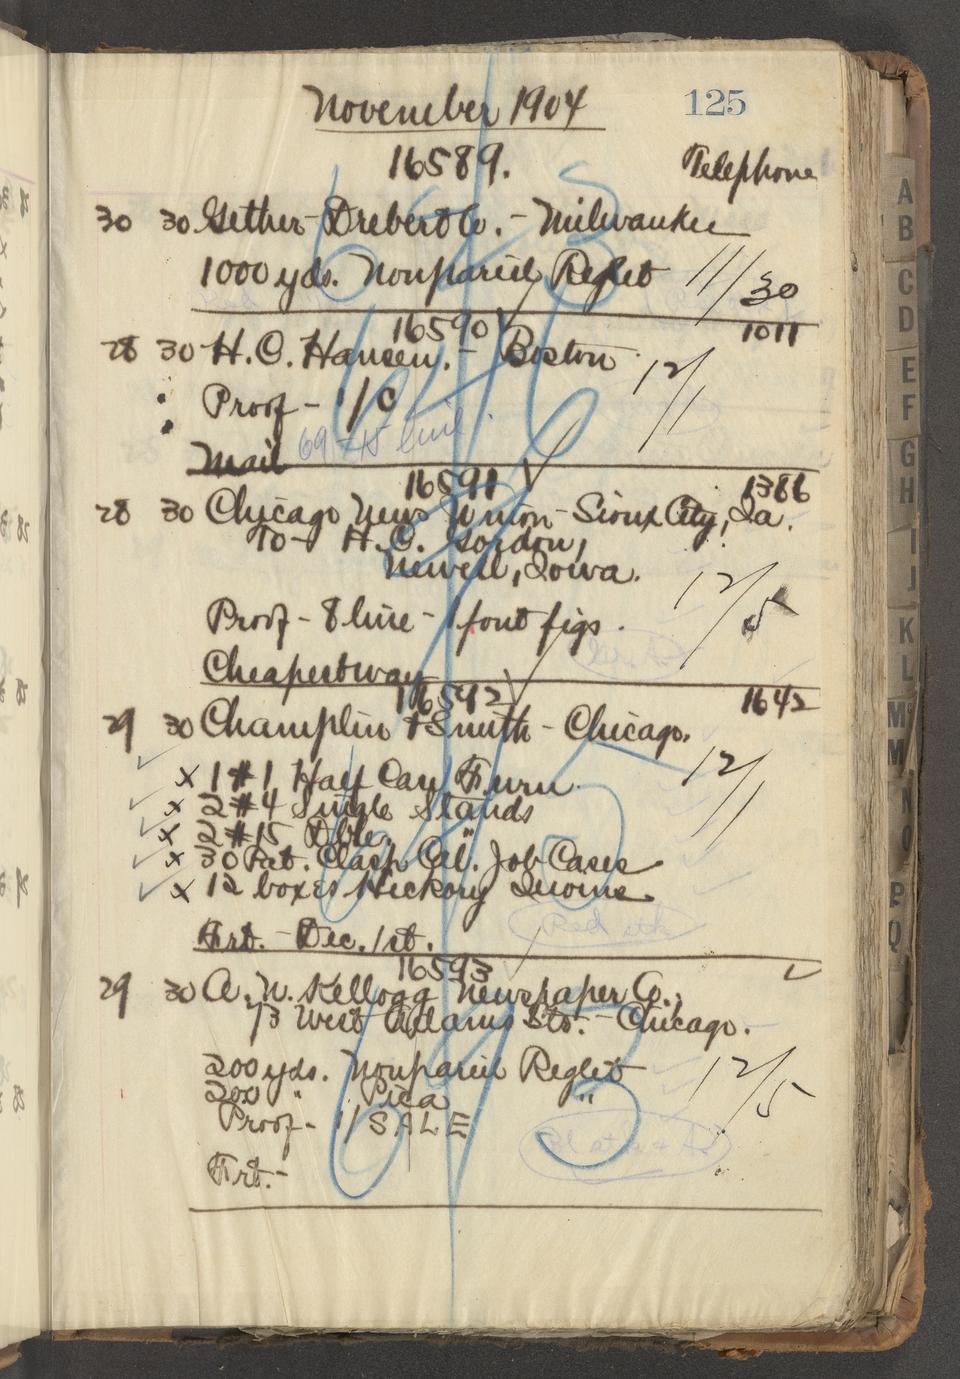 November 1904 125
16589. Telephone
30 30 Gether-Drebert Co. - Milwaukee
1000 yds. Nonpareil Reglet 11/30
16590 1011
28 30 H.C. Hansen. - Boston 12/1
Proof - 1/C
69 - 15 line.
Mail
16591 1386
28 30 Chicago News Union - Sioux City, Ia.
To - H.C. Gordon,
Newell, Iowa. 12/5
Proof - 8 line - 1 font figs.
Cheapest way
16592 1642
29 30 Champlin & Smith - Chicago.
x 1 #1 Half Cay Furn. 12/1
x 2 #4 Single Stands
x 2 #15 Dble. "
x 30 Pat. Clasp Cal. Job Cases
x 12 boxes Hickory Quoins.
Red
Frt. - Dec. 1st.
16593
29 30 A.N. Kellogg Newspaper Co.,
73 West Adams Sts. - Chicago.
200 yds. Nonpareil Reglet 12/5
200 " Pica "
Proof - 1/ SALE
Frt. -
A
B
C
D
E
F
G
H
I
J
K
L
M
M
N
O
P
Q